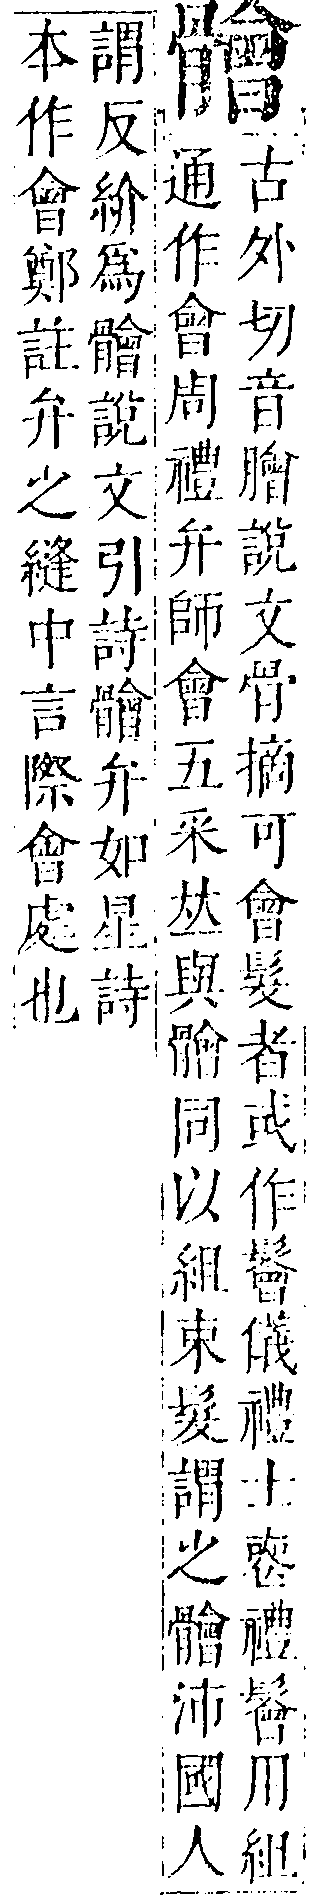 䯤
古外切音膾說文骨擿可會髮者或作鬠儀禮士喪禮鬠用組
通作會周禮弁師會五采𠀤與䯤同以組束髮謂之䯤沛國人
謂反紒爲䯤說文引詩䯤弁如星詩
本作會鄭註弁之縫中言際會處也